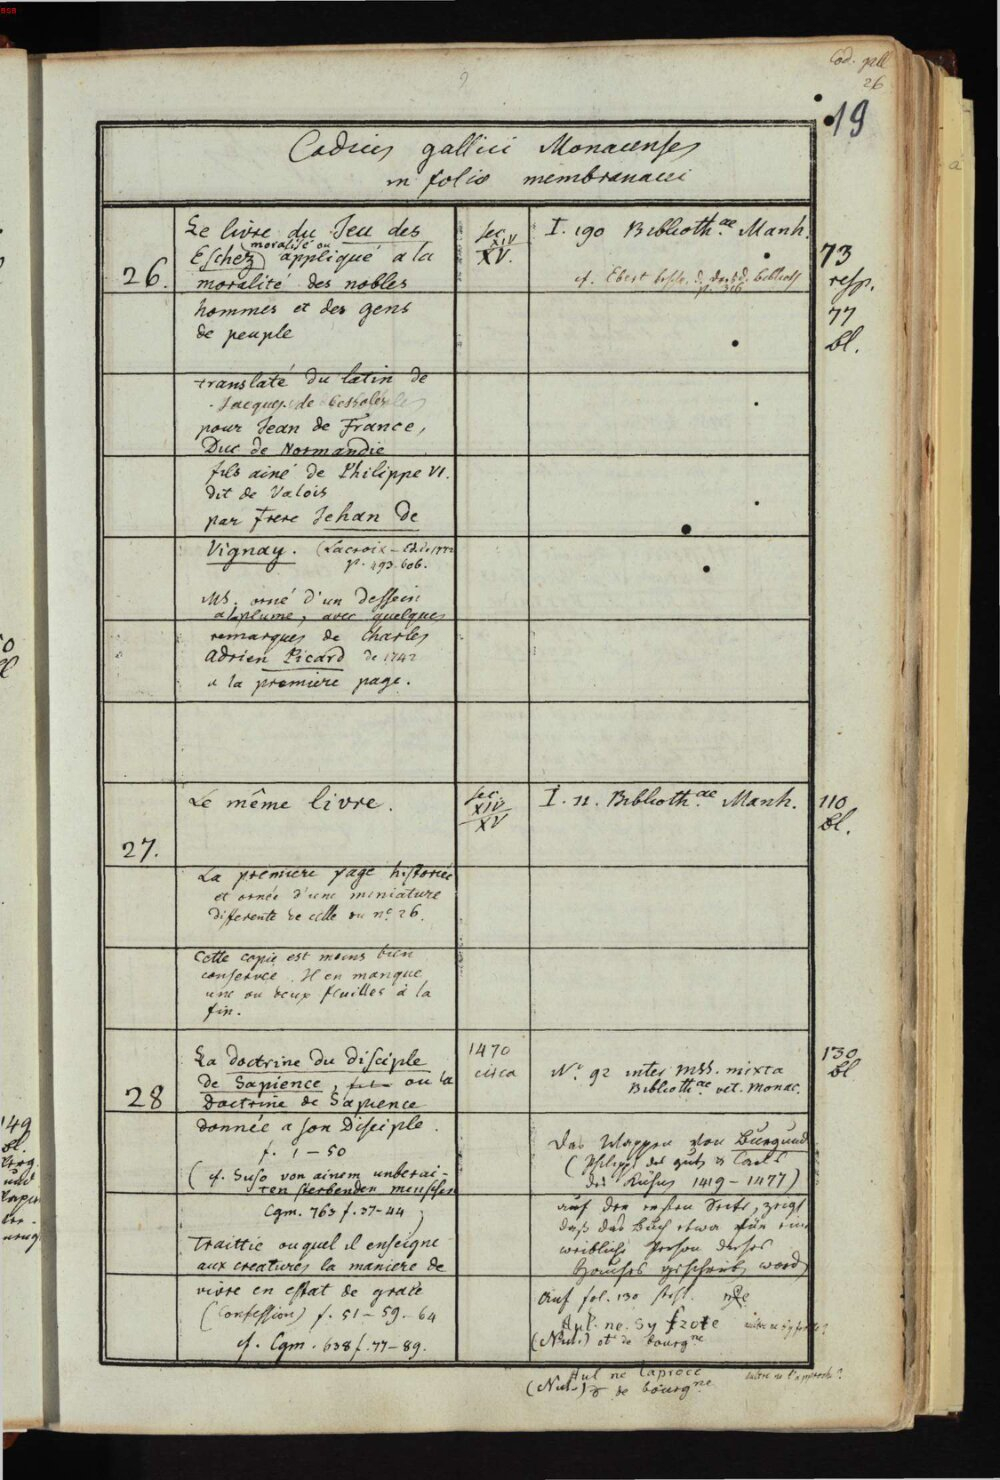 Cod. gall
26
19
Codices gallici Monacenses
in folio membranacei
26.
Le livre du Jeu des
moralisé ou
Eschez appliqué a la
moralité des nobles
hommes et des gens
de peuple
translaté du latin de
Jacques de Cessoles
pour Jean de France,
Duc de Normandie
fils ainé de Philippe VI.
dit de Valois
par frere Jehan de
Vignay. (Lacroix
p. 493. 606.
MS. orné d'un dessein
a la plume, avec quelques
remarques de Charles
Adrien Picard de 1742
a la premiere page.
sec.
XIV
XV.
I. 190 Biblioth.ae Manh.
cf. Ebert
p. 316
73
resp.
77
bl.
27.
Le même livre.
La premiere page historiée
et ornée d'une miniature
differente de celle du nº 26.
Cette copie est moins bien
conservée. Il en manque
une ou deux feuilles à la
fin.
sec.
XIV
XV
I. 11. Biblioth.ae Manh.
110
Bl.
28
La doctrine du disciple
de Sapience, ou la
Doctrine de Sapience
donnée a son Disciple.
f. 1-50
(cf. Suso von ainem unberai-
ten sterbenden menschen
Cgm. 763 f. 37-44;
Traittie ouquel il enseigne
aux creatures la maniere de
vivre en estat de grace
(Confession) f. 51-59-64
cf. Cgm. 638 f. 77-89.
1470
circa
Nº 92 inter mss. mixta
Biblioth.ae vet. Monac.
Das Wappen von Burgund
(Philipps des guten & Carls
des Kühnen 1419-1477)
auf der ersten Seite, zeigt
daß das Buch etwa für eine
weibliche Person dieses
Hauses geschrieben worden
Auf fol. 130 steht.
Aul. ne. sy frote
de bourgne
Aul ne laproce
de bourgne
130
bl